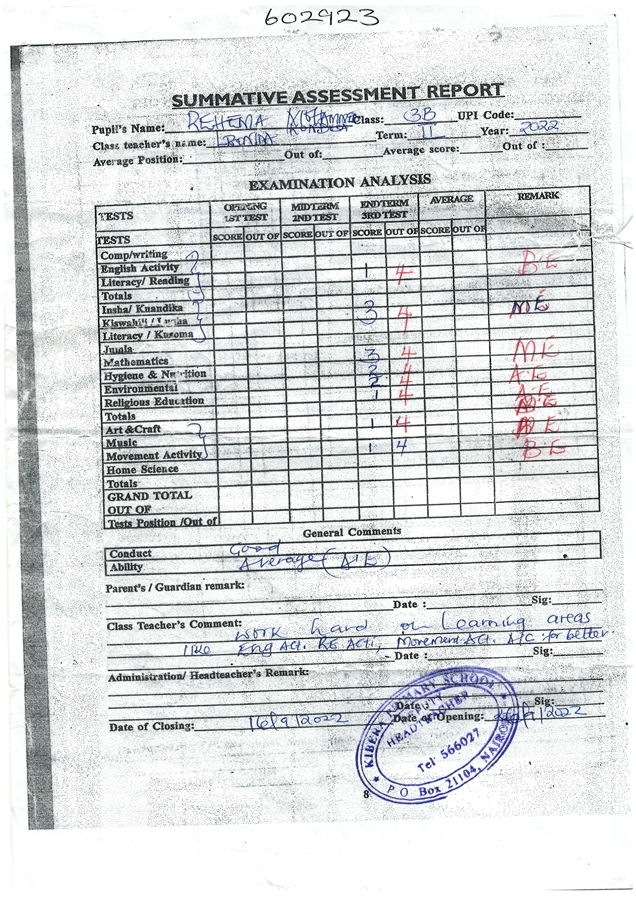 602923
SUMMATIVE ASSESSMENT REPORT
Pupil's Name: REHEMA Class: 3B UPI Code:
Class teacher's name: Term: II Year: 2022
Average Position: Out of: Average score: Out of :
EXAMINATION ANALYSIS
TESTS OPENING 1ST TEST MIDTERM 2ND TEST ENDTERM 3RD TEST AVERAGE REMARK
TESTS SCORE OUT OF SCORE OUT OF SCORE OUT OF SCORE OUT OF
Comp/writing
English Activity 1 4 B.E
Literacy/ Reading
Totals
Insha/ Kuandika 3 4 M.E
Kiswahili /
Literacy / Kusoma
Jumla
Mathematics 3 4 M.E
Hygiene & Nutrition 2 4 A.E
Environmental 2 4 A.E
Religious Education 1
Totals
Art &Craft 1 4
Music
Movement Activity 1 4 B.E
Home Science
Totals
GRAND TOTAL
OUT OF
Tests Position /Out of
General Comments
Conduct Good
Ability Average (A.E)
Parent's / Guardian remark:
Date : Sig:
Class Teacher's Comment: work hard on Learning areas
like Eng Act. RE Acti, Movement Act. A/C for better.
Date : Sig:
Administration/ Headteacher's Remark:
Date Sig:
Date of Closing: 16/9/2022 Date of Opening: 26/9/2022
KIBERA PRIMARY SCHOOL
DEPUTY
HEADTEACHER
Tel: 566027
P O Box 21104, NAIROBI
8